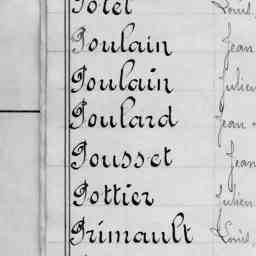 Potel Louis,
Poulain Jean
Poulain Julien
Poulard Jean
Pousset Jean
Pottier Julien
Primault Louis,